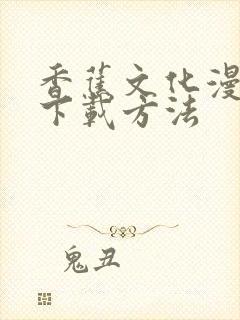 香蕉文化漫
下载方法
鬼丑